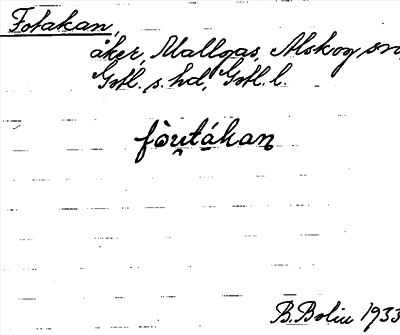 Fotakan,
åker, Mallgas, Alskog sn,
Gotl. s. hd, Gotl. l.
fòu̯tákan
B. Bolin 1933